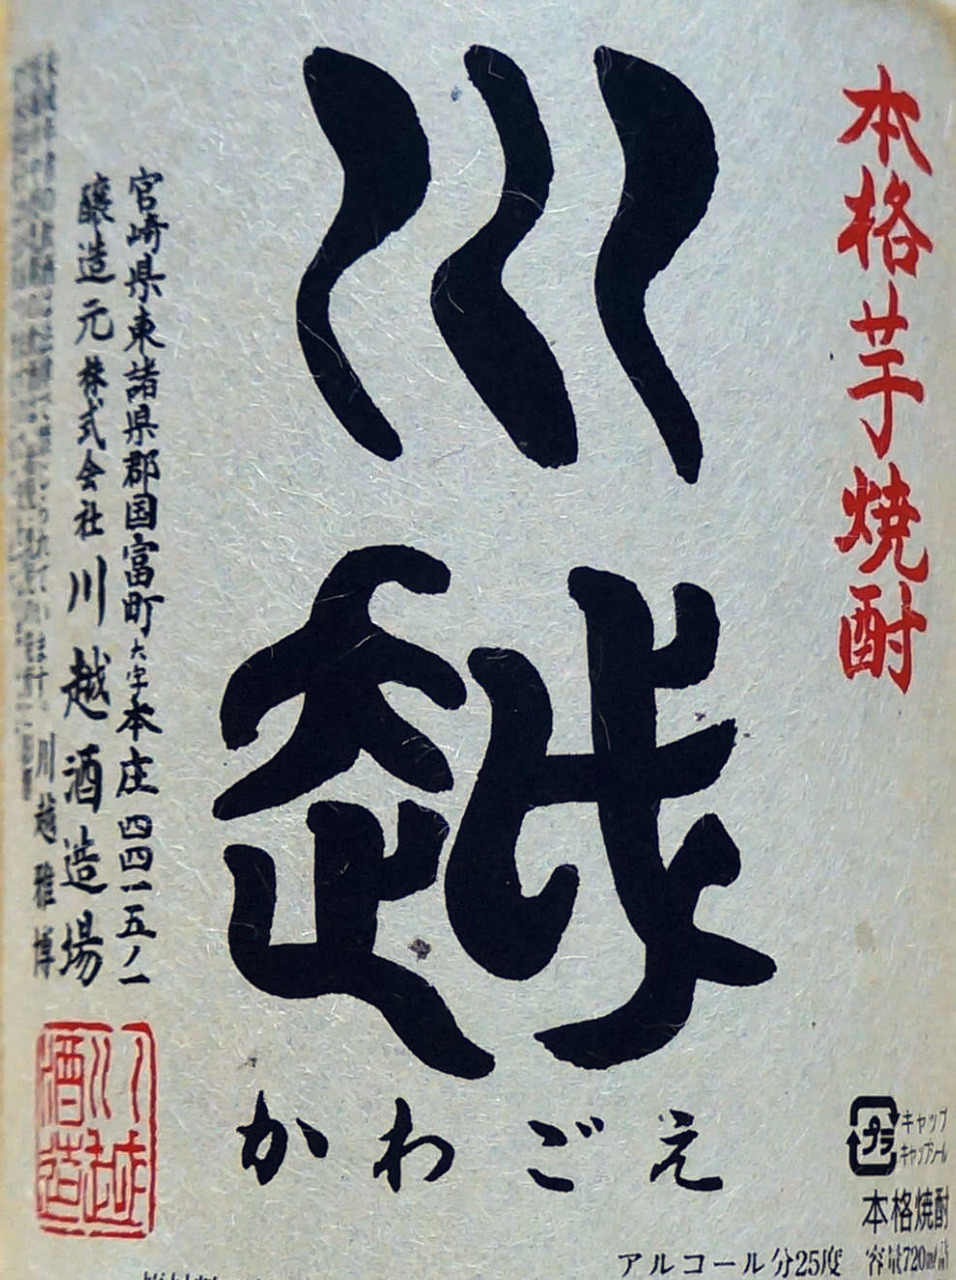 本格芋焼酎
川越
かわごえ
宮崎県東諸県郡国富町大字本庄四四一五ノ一
醸造元株式会社川越酒造場
川越雅博
川越酒造
プラ
キャップ
キャップシール
本格焼酎
容量720ml詰
アルコール分25度